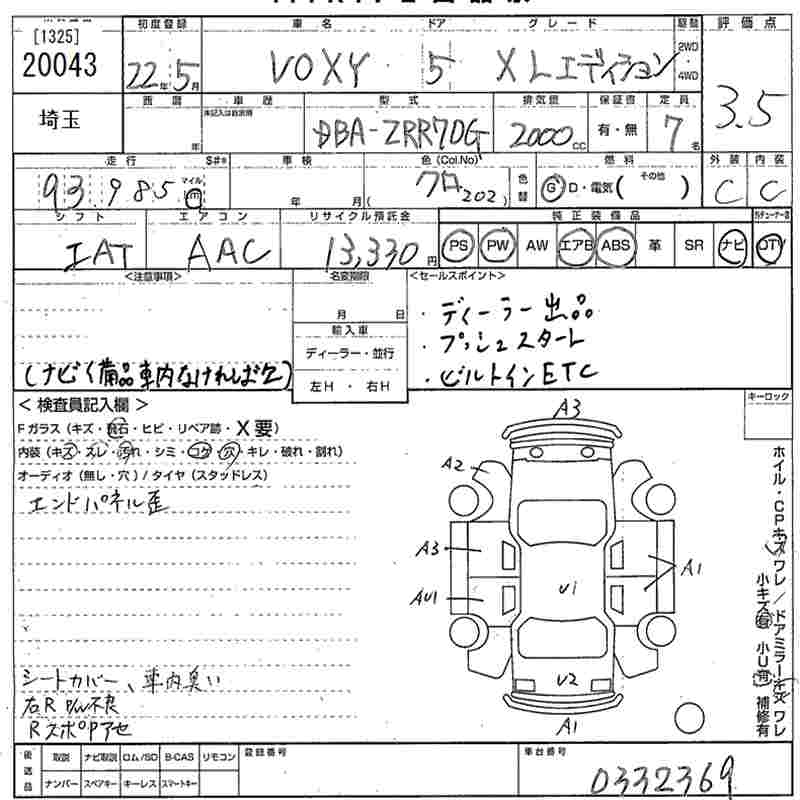 [1325]
20043
埼玉
初度登録 車名 ドア グレード 駆動 評価点
22年5月 VOXY 5 XLエディション 2WD 4WD 3.5
車歴 型式 排気量 保証書 定員
年 未記入は自家用 DBA-ZRR70G 2000cc 有・無 7名
走行 S#* 車検 色(Col.No) 燃料 外装 内装
93,985 マイル km 年 月 ( クロ 202 ) 色替 G D・電気( その他 ) C C
シフト エアコン リサイクル預託金 純正装備品
IAT AAC 13,330円 PS PW AW エアB ABS 革 SR ナビ DTV
<注意事項> 名変期限 <セールスポイント>
月 日 ・ディーラー出品
輸入車 ・プッシュスタート
ディーラー・並行
(ナビイ備品車内なければ欠) 左H・右H ・ビルトインETC
<検査員記入欄> キーロック
Fガラス(キズ・飛石・ヒビ・リペア跡・X要)
内装(キズ・スレ・汚れ・シミ・コゲ・穴・キレ・破れ・割れ)
オーディオ(無し・穴)/タイヤ(スタッドレス)
エンドパネル歪
A3
A2
A3 A1
AU1 U1
U2
A1
ホイル・CPキズワレ/ドアミラーキズワレ
小キズ有 小U有 補修有
シートカバー、車内臭い
右R 不良
RスポOPアセ
後送品 取説 ナビ取説 ロム/SD B-CAS リモコン 登録番号 車台番号
ナンバー スペアキー キーレス スマートキー 0332369